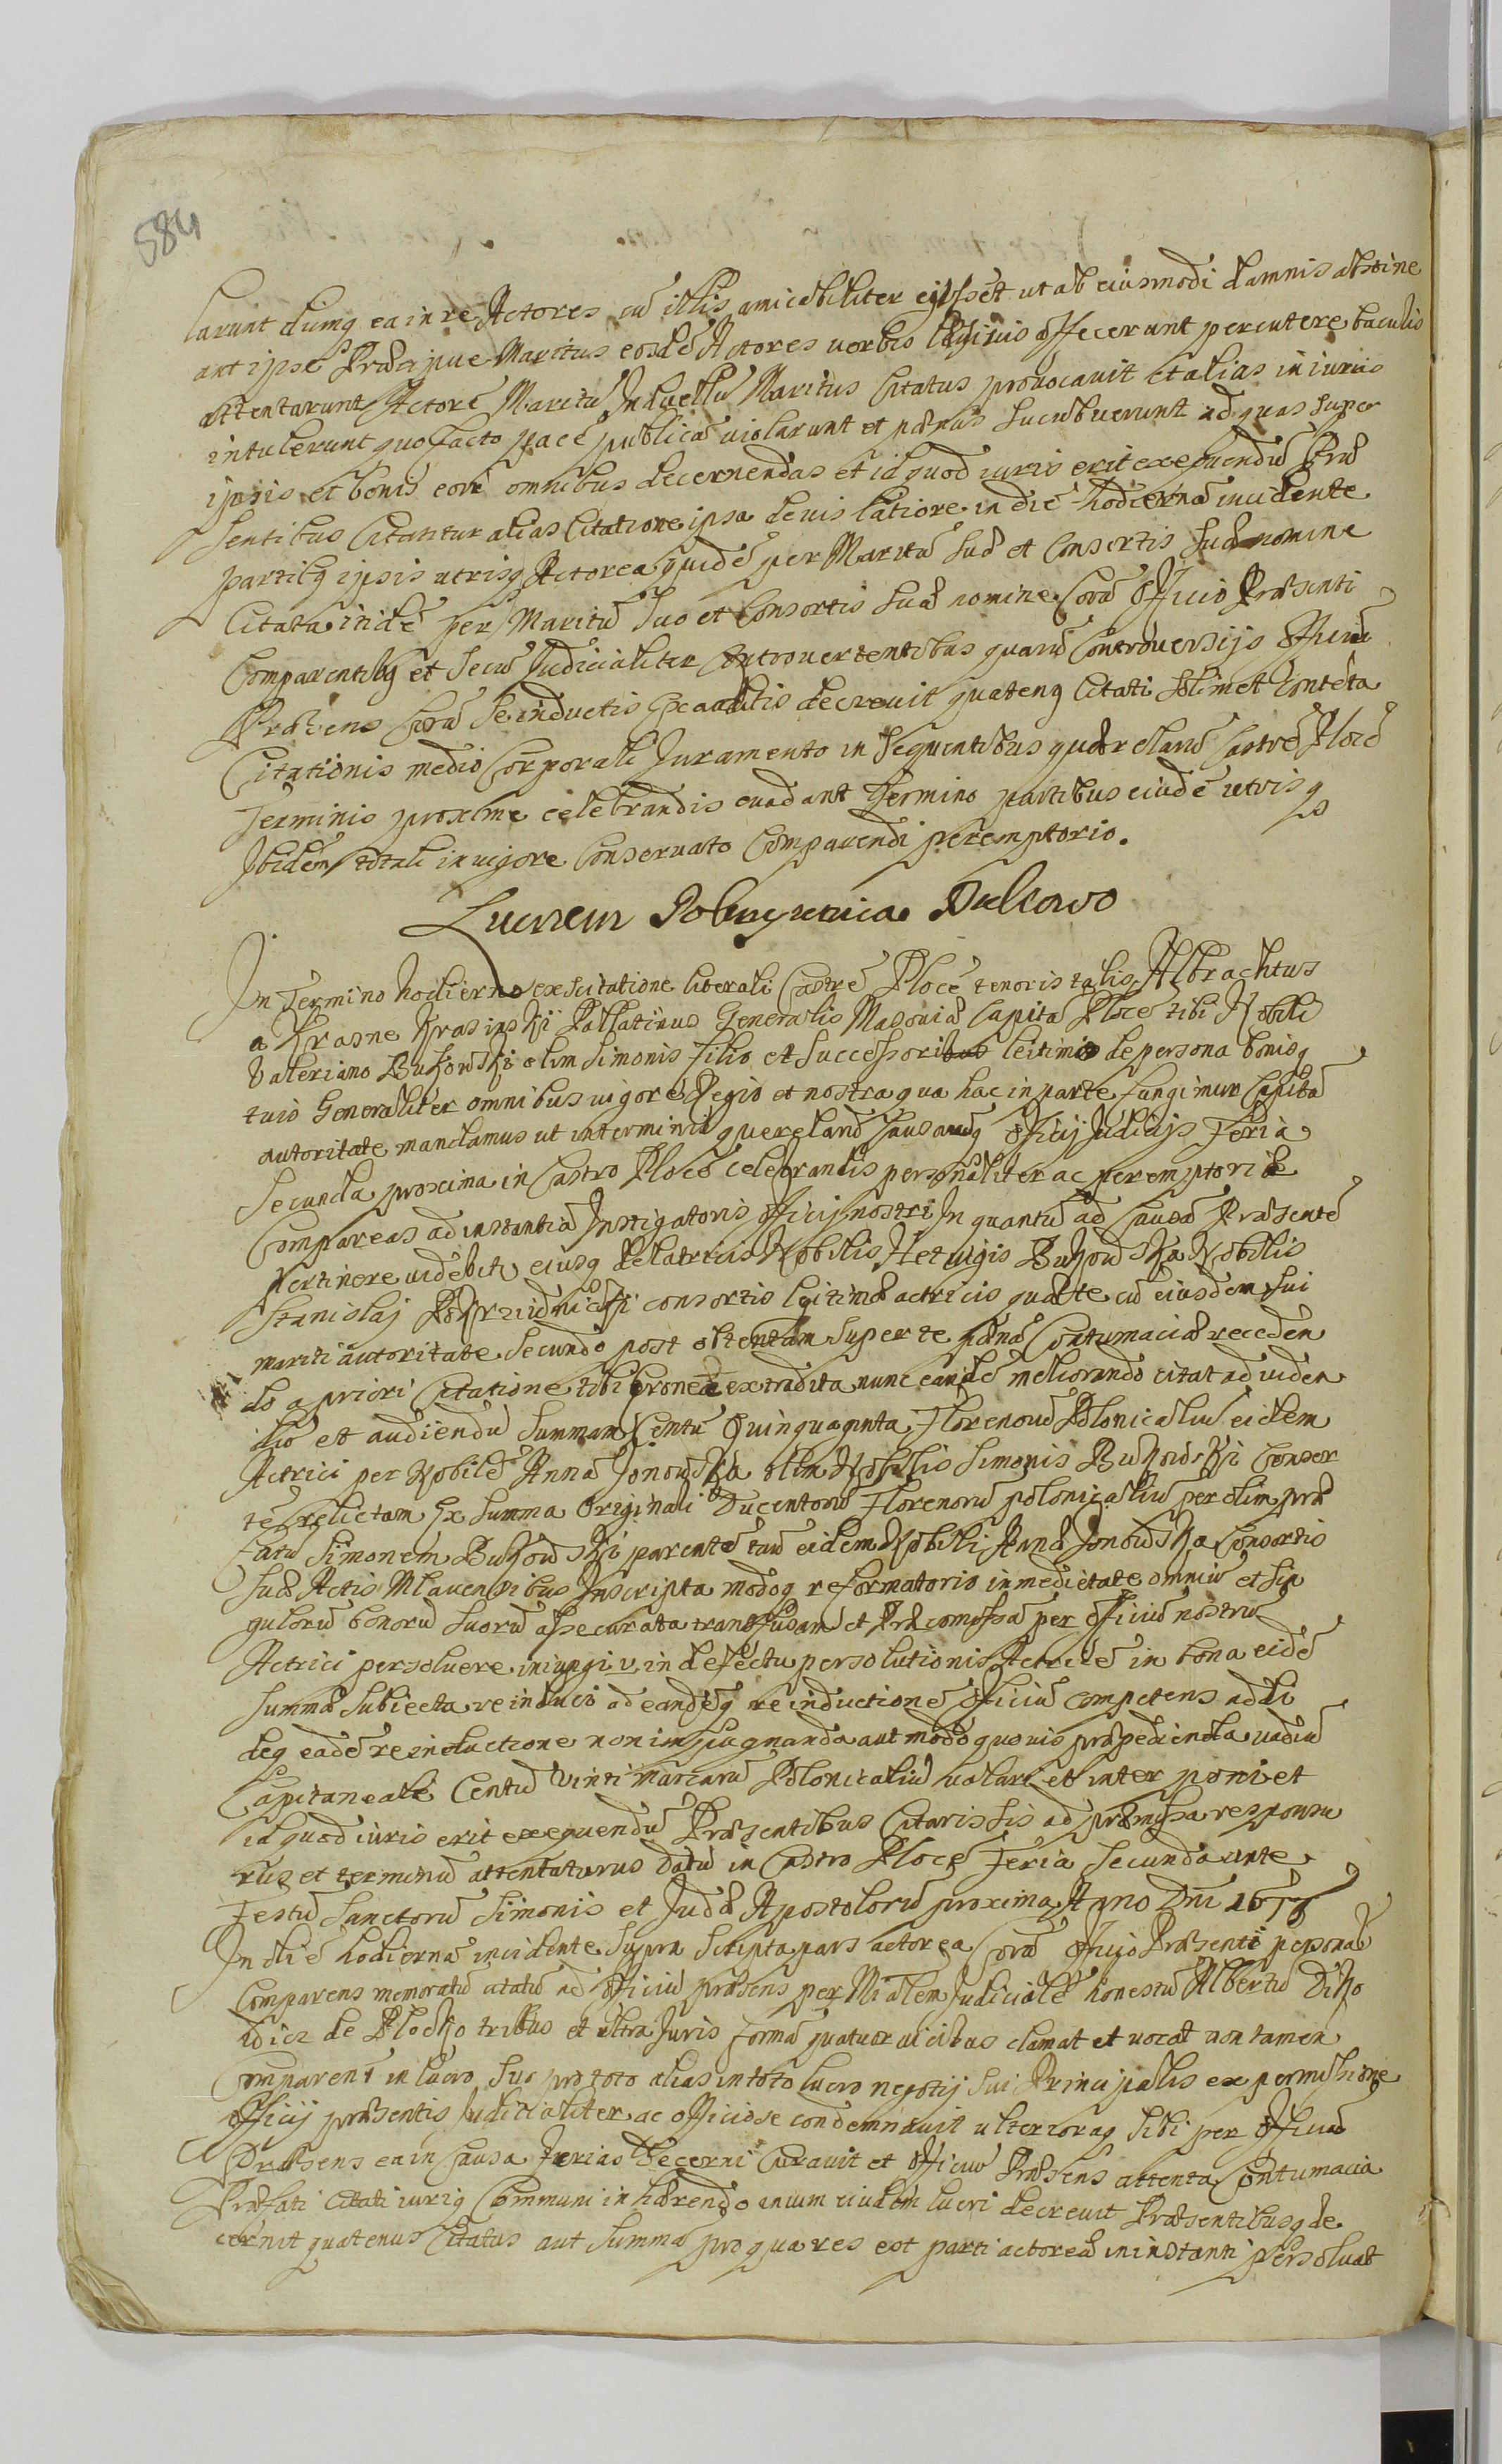 584
larunt dumq ea in re Actores cũ illis amicabiliter egissēt ut ab eiusmodi damnis abstine
ant ipse Præcipue Maritus eosdē Actores verbis affecerunt percutere baculis
attentarunt Actorē Maritũ In duellũ Maritus Citatus provocavit et alias iniurias
intulerunt quo facto pacē publicā violarunt et pænas sucubuerunt ad quas super
ipsis et bonis eorũ omnibus decernendas et id quod iuris erit exequendũ Præ
sentibus Citantur alias Citatione ipsa de vis latiore in diē hodiernā incidente
partibq ipsis utrisq Actorea quidē per Maritũ suo et Consortis suæ nomine
Citata itidē per Maritũ Suo et Consortis suæ nomine Corā Officio Præsenti
Comparentibq et secũ Judicialiter Controvertentibus quarũ Controversijs Officiũ
Præsens Corā se inductis Exauditis decrevit quatenq Citati solimet Contēta
Citationis medio Corporali Juramento in sequentibus quærelarũ Castrē Plocē
Terminis proxime celebrandis evadant Termino partibus eiusdē utrisq
Ibidem totali in vigore Conservato Comparendi peremptorio.
Lucrem
In Termino hodierno ex Citatione literali Castrē Plocē tenoris talis Albrachtus
a Krasne Krasinski Pallatinus Generalis Masoviæ Capitā Plocē tibi Nobili
Valeriano Bukowski olim Simonis filio et Successori leitimo de persona bonisq
tuis Generaliter omnibus vigore Regio et nostra qua hac in parte fungimur Capitā
autoritate mandamus ut in terminis querelarũ Causarũq officij Judicijs Feria
Secunda proxima in Castro Plocē celebrandis personaliter ac peremptoriē
Compareas ad instantiā Instigatoris officij nostri In quantũ ad Causā Præsentē
pertinere videbit eiusq delatricis Nobilis Hetvigis Bukowska Nobilis
Stanislaj consortis legitimæ actricis quæ te cũ eiusdem sui
mariti autoritate Secundo post obtentam super te pænā Contumaciæ receden
do a priori Citatione tibi eronee extradita nunc eandē meliorando citat ad viden
dũ et audiendũ Summam Centũ Quinquaginta Florenorũ Polonicaliũ eidem
Actrici per Nobilē Annā Jonowska olim Nobilis Simonis Bukowski Consor
tē relictam Ex Summa Originali Ducentorũ Florenorũ polonicaliũ per olim præ
fatũ Simonem Bukowski parentē tuũ eidem Nobili Annæ Jonowska Consortis
suæ Actis Mlavensibus Inscripta modoq reformatorio in medietate omniũ et sin
gulorũ bonorũ suorũ assecurata transfusam et Præcomissā per officiũ nostrũ
Actrici persolvere iniungi v. in defectu persolutionis Actricē in bona eidē
Summæ subiecta reinduci ad eandēq reinductionē officiũ competens addi
deq eadē reinductione non impugnanda aut modo quovis præpedienda vadiũ
Capitaneale Centũ Vinti marcarũ Polonicaliũ valari et interponi et
id quod iuris erit exequendũ Præsentibus Citaris sis ad præmissa responsu
rus et terminũ attentaturus Datũ in Castro Plocē Feria Secunda ante
Festũ Sanctorũ Simonis et Judæ Apostolorũ proxima Anno Dni
In diē hodiernā incidente supra scripta pars actorea Corā Officio Præsenti personalr
Comparens memoratũ citatũ ad Officiũ præsens per Mialem Judicialē honestũ Albertũ
de Plocko tribus et ultra Juris formā quatuor vicibus clamat et vocat non tamen
Comparent in lucro suo pro toto alias in toto lucro negotij sui Principalis ex permissione
officij præsentis Judicialiter ac officiose condemnavit ulterioraq sibi per officiũ
Præsens ea in Causa Decerni Curavit et officiũ Præsens attenta Contumacia
Præfati Citati iuriq Communi inhærendo eiusdem lucri decrevit Præsentibusq de
cernit quatenus Citatus aut Summā pro qua res est parti actoreæ in instanti persolvat